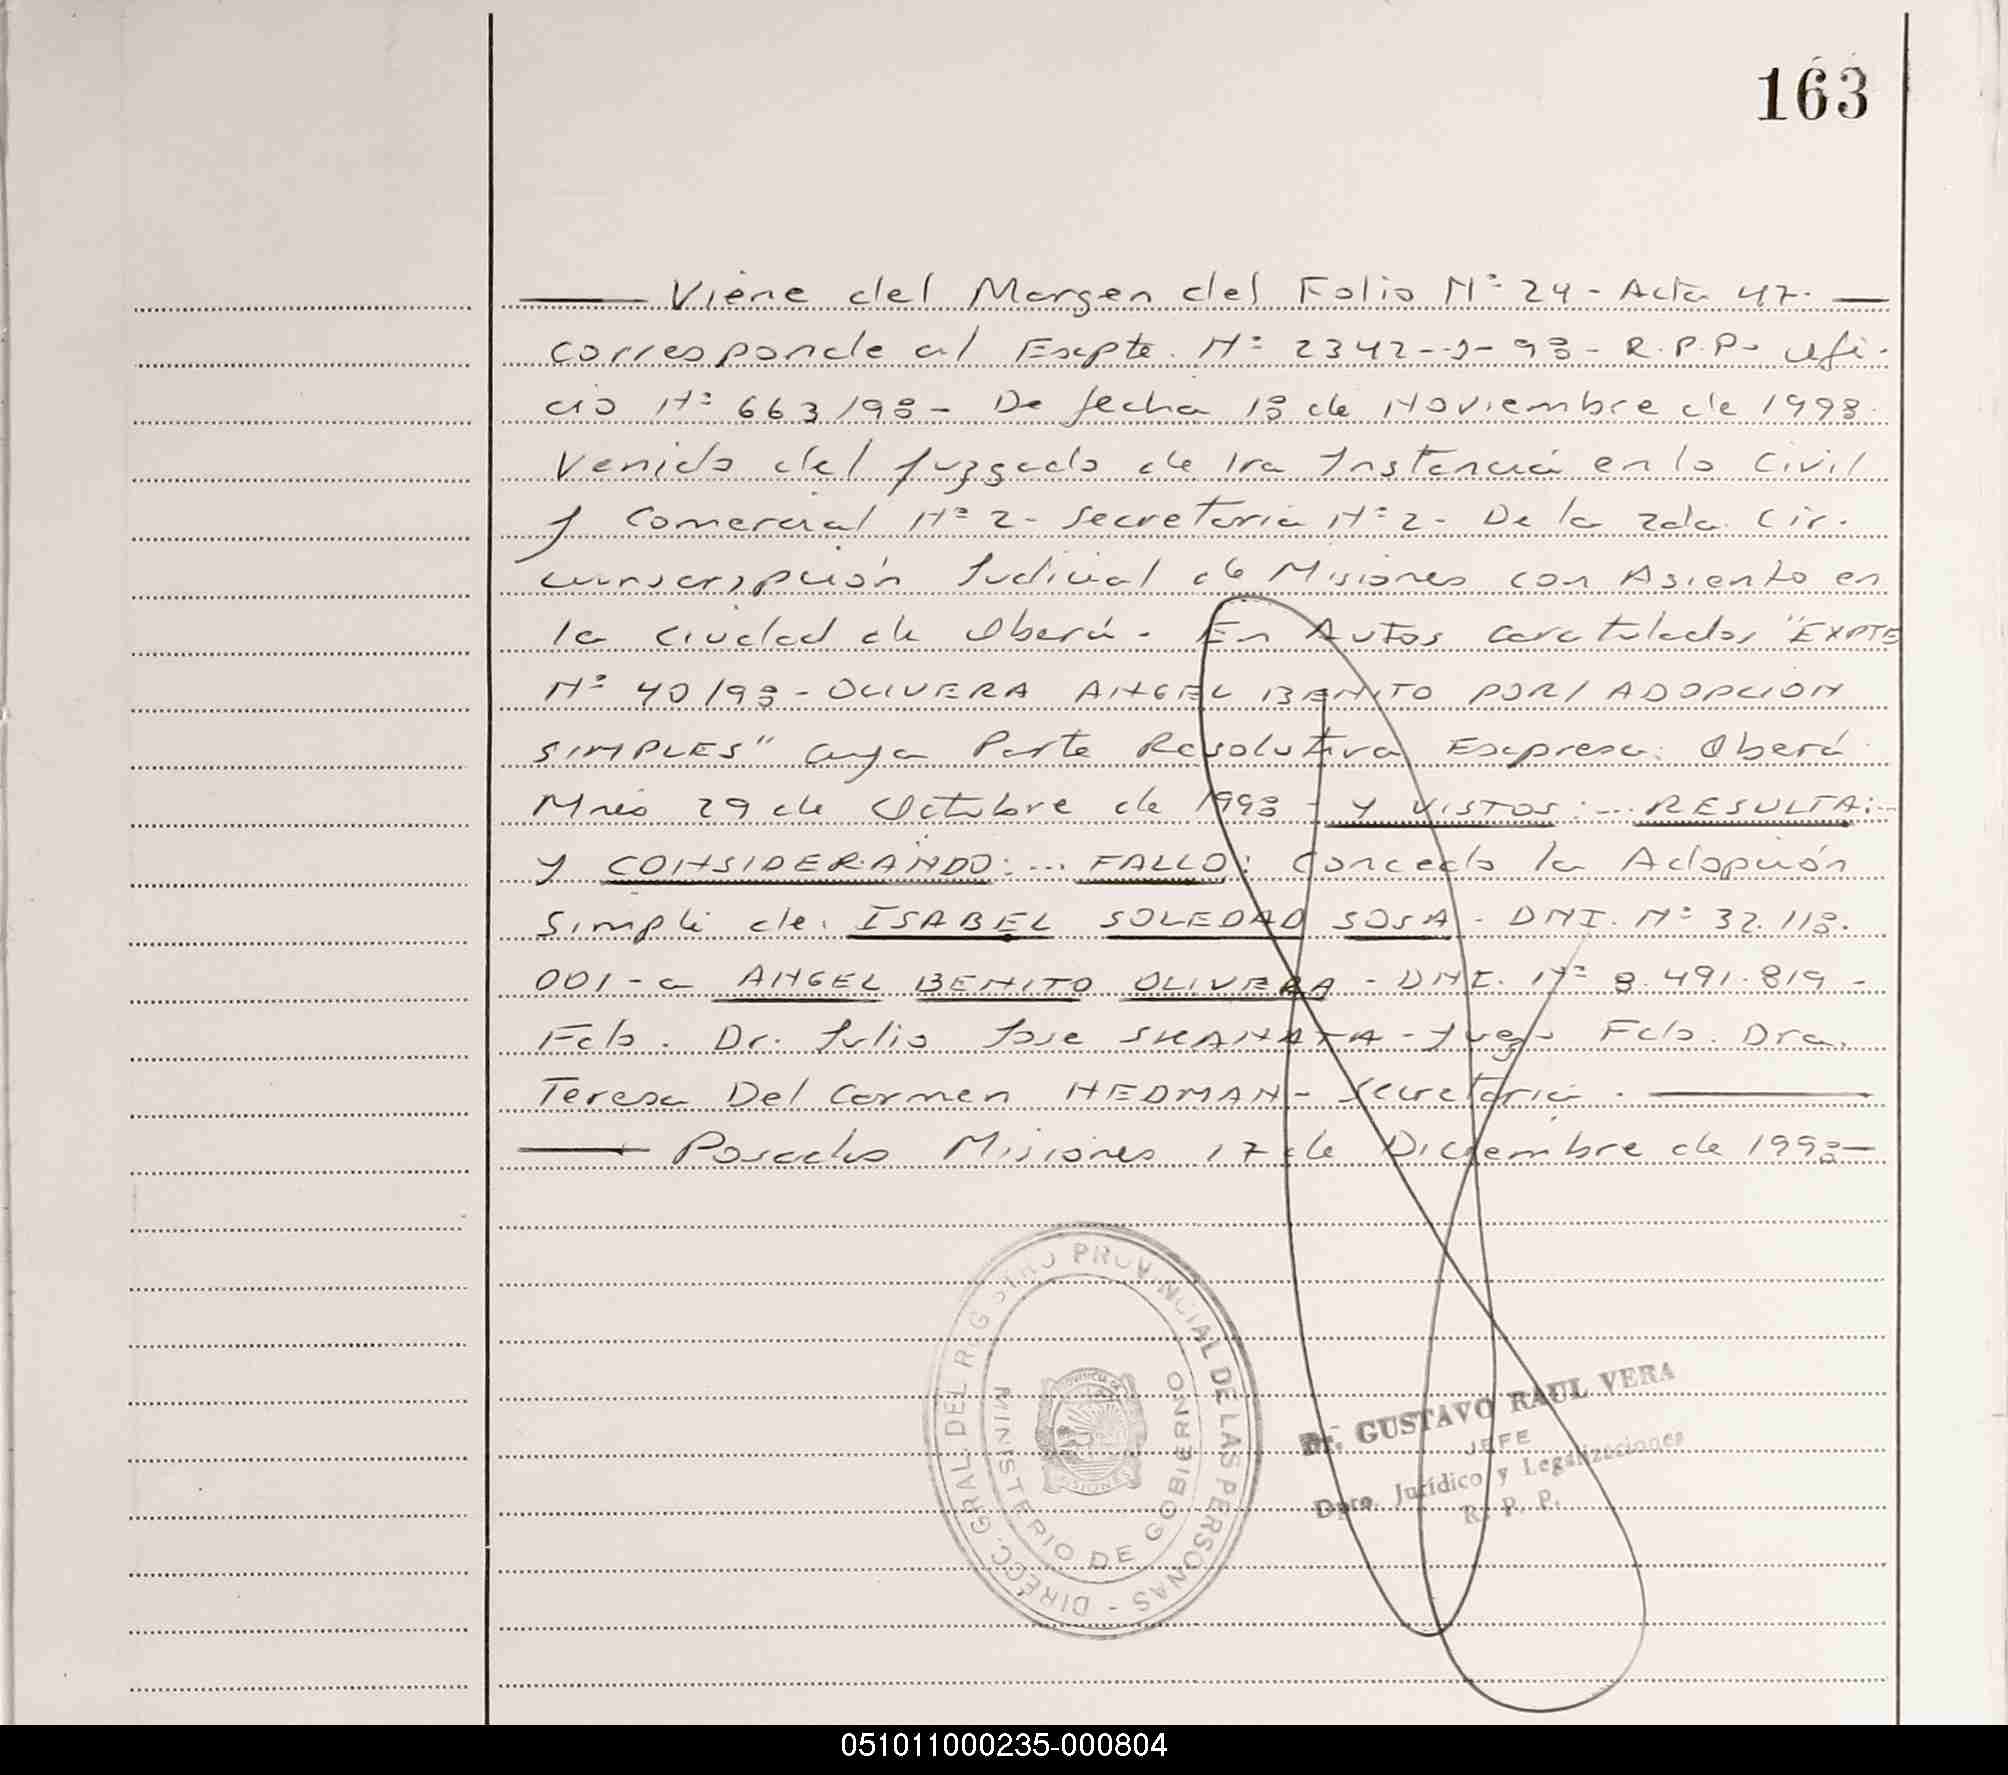 163
Viene del Margen del Folio N° 24 - Acta 47.
corresponde al Expte. N° 2342-J-98- R.P.P. Ofi-
cio N° 663/98- De fecha 18 de Noviembre de 1998.
Venido del Juzgado de 1ra Instancia en lo Civil
y Comercial N° 2- Secretaria N° 2- De la 2da. Cir-
cunscripción Judicial de Misiones con Asiento en
la Ciudad de Oberá - En Autos caratulados "EXPTE
N° 40/98 - OLIVERA ANGEL BENITO POR/ ADOPCION
SIMPLES" cuya Parte Resolutiva Expresa: Oberá
Mnes 29 de Octubre de 1998 - Y VISTOS:... RESULTA:..
y CONSIDERANDO:... FALLO: Concedo la Adopción
Simple de: ISABEL SOLEDAD SOSA - DNI. N° 32.118.
001 - a ANGEL BENITO OLIVERA - DNI. N° 8.491.819 -
Fdo. Dr. Julio Jose - Juez - Fdo. Dra.
Teresa Del Carmen HEDMAN - Secretaria.
Posadas Misiones 17 de Diciembre de 1998-
DIRECC. GRAL. DEL REGISTRO PROVINCIAL DE LAS PERSONAS -
MINISTERIO DE GOBIERNO
PROVINCIA DE
MISIONES
Dr. GUSTAVO RAUL VERA
JEFE
Dpto. Jurídico y Legalizaciones
R. P. P.
051011000235-000804